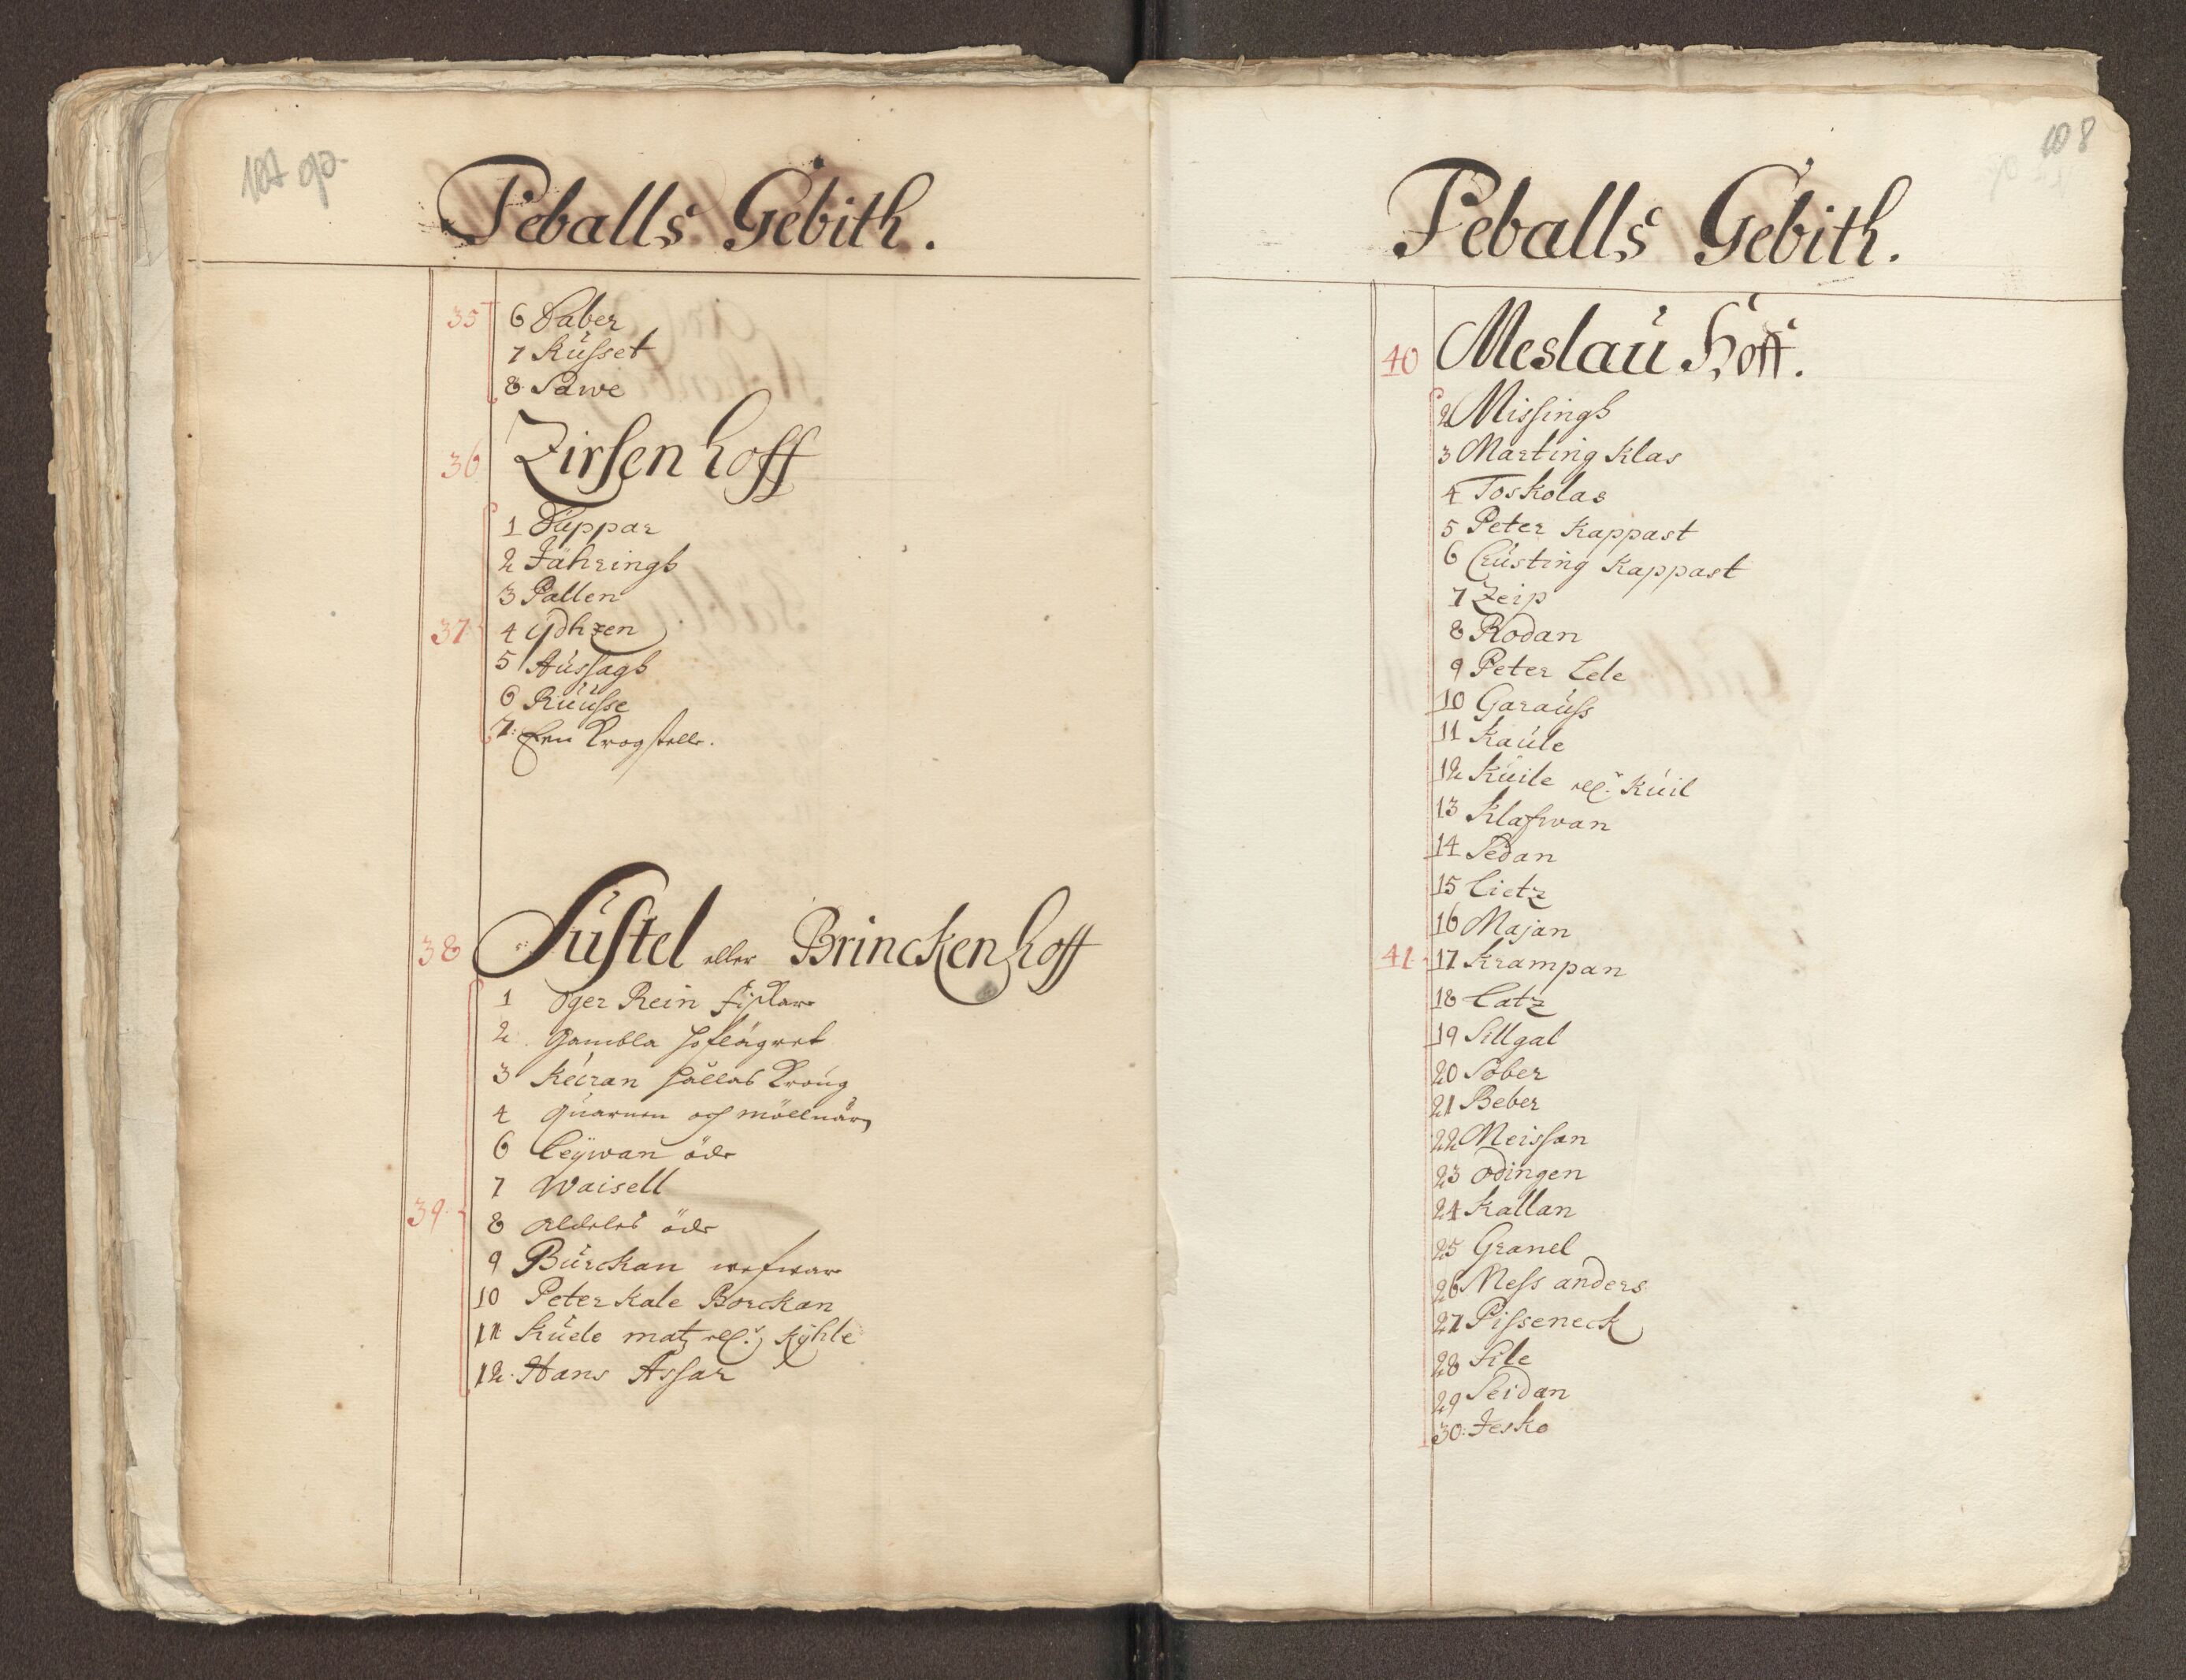 107 op.
Peballs Gebith.
35 6 Daber
7 Küsset
8 Sawe
36 Zirsen hoff
1 Duppar
2 Jährings
3 Pallen
37 4 ydhzen
5 Aussags
6 Ruusse
7. Een Krogstelle.
38 Sustel eller Brincken hoff
1 Oger Rein fiskare
2 Gambla Hoflägret
3 Keiran hålles Kroug
4 Quarnen och möllnärn
6 Leywan öde
7 Waisell
8 Aldeles öde
9 Burckan wefware
10 Peter Kale Borckan
11 Kude matz ell.r Kyhle
12. Hans Assar
108
Peballs Gebith.
40 Meslau Hoff.
2 Missings
3 Marting Klas
4 Toskolas
5 Peter Kappast
6 Crusting Kappast
7 Zeip
8 Rodan
9 Peter Lele
10 Garauss
11 Kaule
12 Kuile ell.r Kuil
13 Klafwan
14 Sedan
15 Lietz
16 Majan
41 17 Krampan
18 Catz
19 Sillgal
20 Sober
21 Beber
22 Meissan
23 Odingen
24 Kallan
25 Granel
26 Mess anders
27 Pisseneck
28 Sile
29 Seidan
30. Jesko